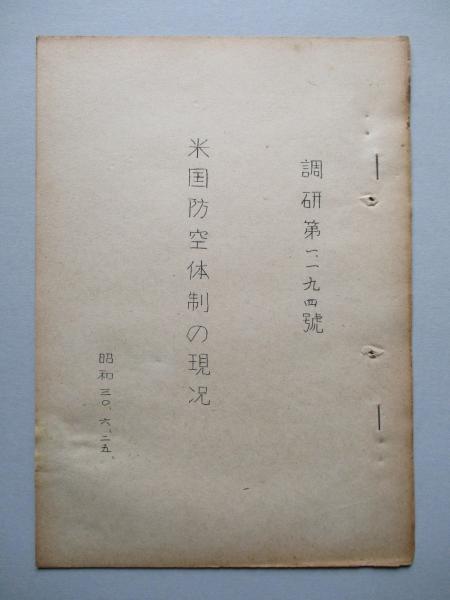 調研第一、一九四號
米国防空体制の現況
昭和三〇、六、二五、